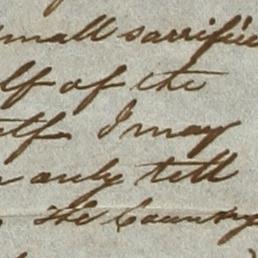 small sacrifice
lf of the
elf. I may
only tell
The Country